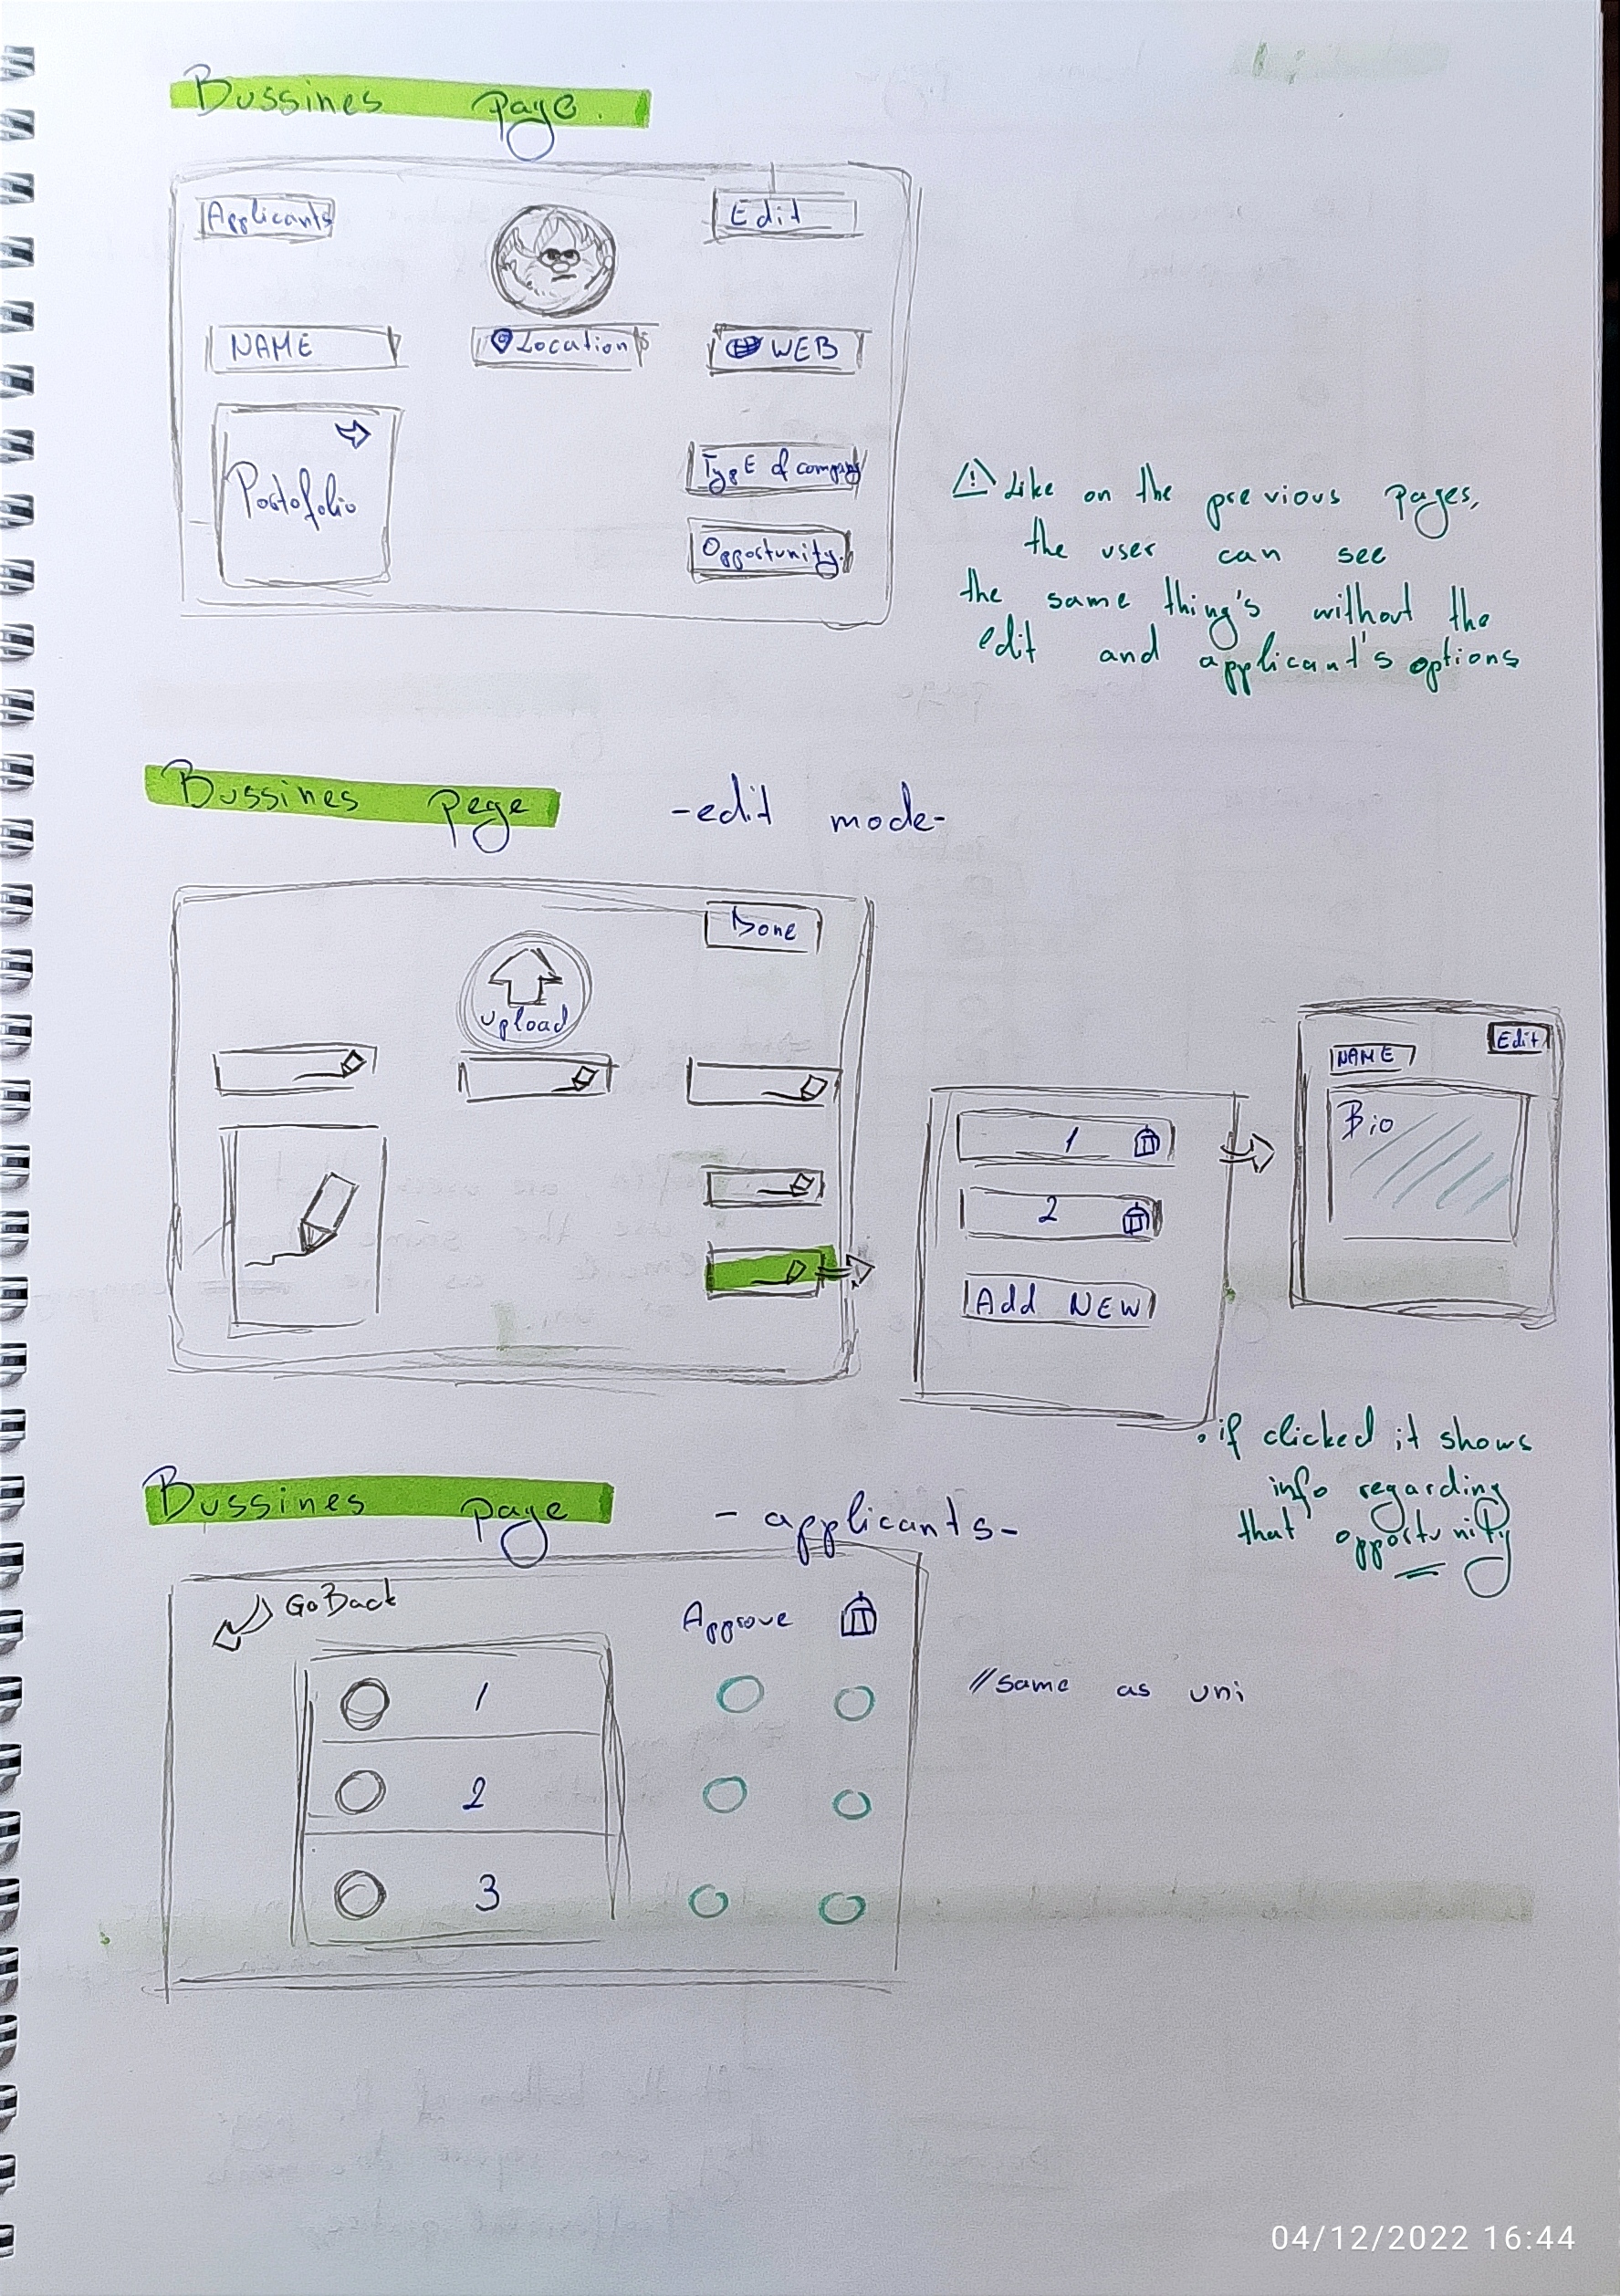 Bussines page.
Applicants
Edit
NAME
Location
WEB
Portofolio
TypE of company
Opportunity
! Like on the previous pages,
the user can see
the same thing's without the
edit and applicant's options
Bussines pege -edit mode-
Done
upload
1
2
Add NEW
NAME
Edit
Bio
• if clicked it shows
info regarding
that opportunity
Bussines page - applicants-
Go Back
Approve
1
2
3
// same as uni
04/12/2022 16:44